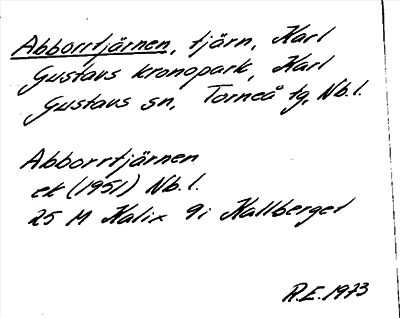 Abborrtjärnen, tjärn, Karl
Gustavs kronopark, Karl
Gustavs sn, Torneå tg, Nb.l.
Abborrtjärnen
ek (1951) Nb.l.
25 M Kalix 9i Kallberget
R.E.1973